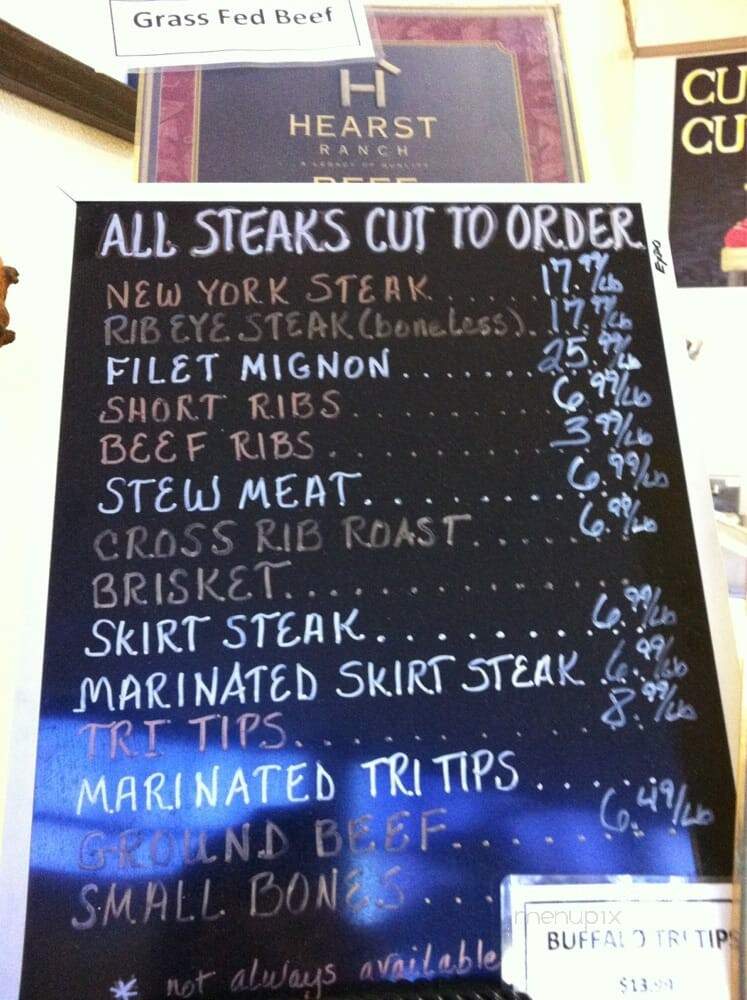 Grass Fed Beef
H
HEARST
RANCH
A LEGACY OF QUALITY
BEEF
CU
CU
ALL STEAKS CUT TO ORDER
Expo
NEW YORK STEAK..... 17.99/Lb
RIB EYE STEAK (boneless). 17.99/Lb
FILET MIGNON....... 25.99/Lb
SHORT RIBS......... 6.99/Lb
BEEF RIBS.......... 3.99/Lb
STEW MEAT.......... 6.99/Lb
CROSS RIB ROAST.... 6.99/Lb
BRISKET............
SKIRT STEAK........ 6.99/Lb
MARINATED SKIRT STEAK.. 6.99/Lb
TRI TIPS........... 8.99/Lb
MARINATED TRI TIPS.....
GROUND BEEF...... 6.49/Lb
SMALL BONES...
* not always available
menupix
BUFFALO TRI TIPS
$13.99